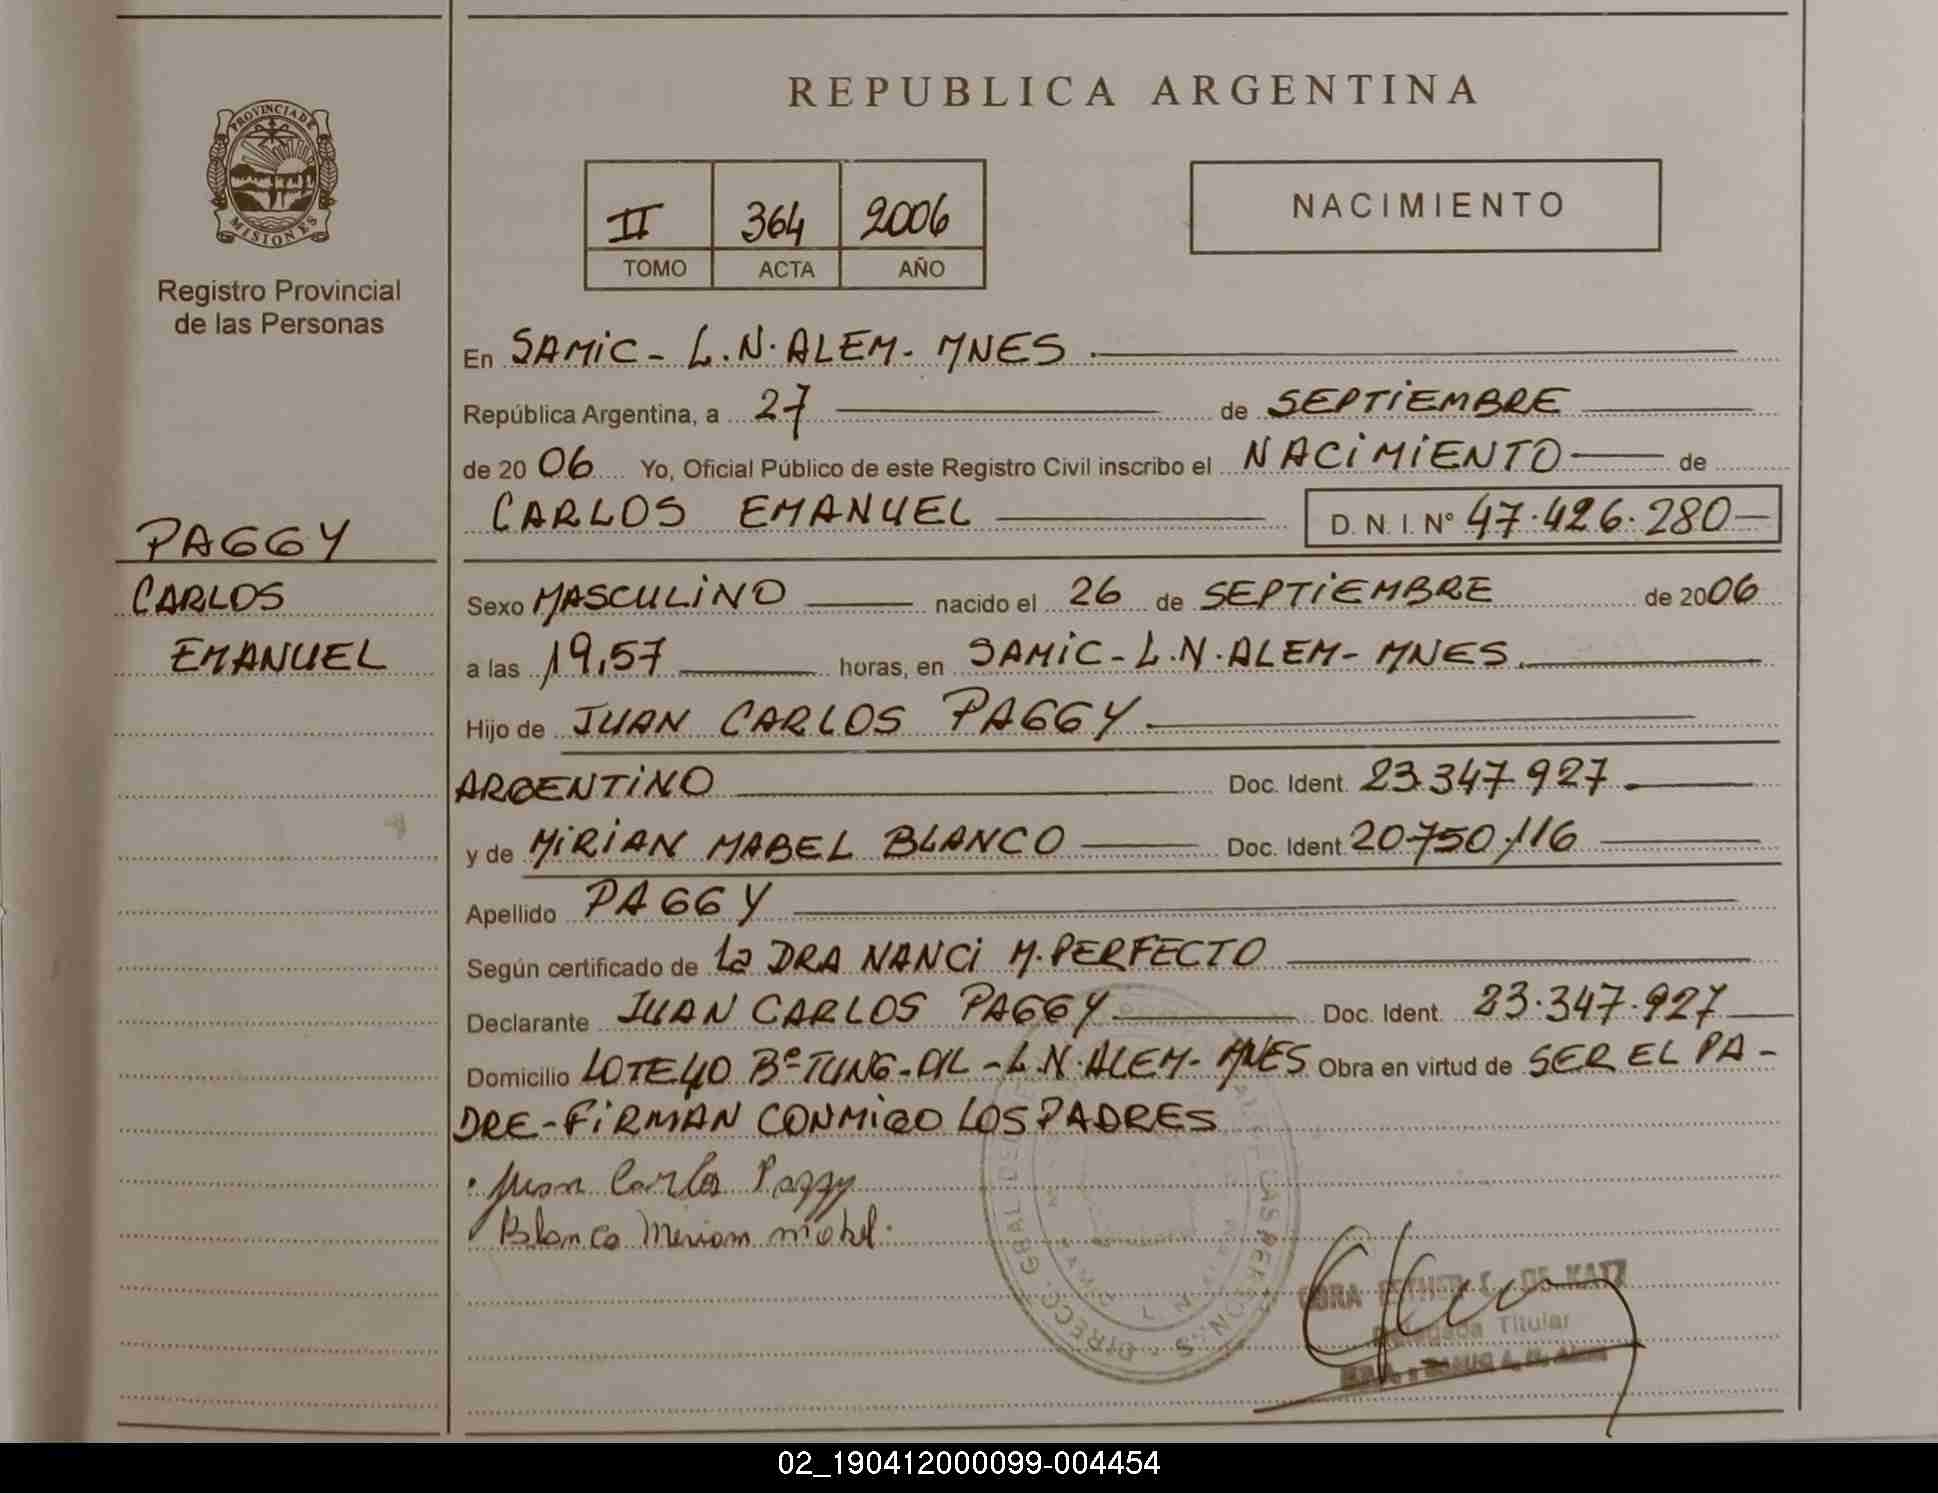 REPUBLICA ARGENTINA
PROVINCIA DE
MISIONES
Registro Provincial
de las Personas
II 364 2006
TOMO ACTA AÑO
NACIMIENTO
En SAMIC - L.N. ALEM - MNES.
República Argentina, a 27 de SEPTIEMBRE
de 2006 Yo, Oficial Público de este Registro Civil inscribo el NACIMIENTO de
CARLOS EMANUEL D.N.I. N° 47.426.280
PAGGY
CARLOS
EMANUEL
Sexo MASCULINO nacido el 26 de SEPTIEMBRE de 2006
a las 19,57 horas, en SAMIC - L.N. ALEM - MNES.
Hijo de JUAN CARLOS PAGGY
ARGENTINO Doc. Ident. 23.347.927
y de MIRIAN MABEL BLANCO Doc. Ident. 20.750.116
Apellido PAGGY
Según certificado de La DRA NANCI M. PERFECTO
Declarante JUAN CARLOS PAGGY Doc. Ident. 23.347.927
Domicilio LOTE 40 Bº TUNG-OIL - L.N. ALEM - MNES Obra en virtud de SER EL PA-
DRE - FIRMAN CONMIGO LOS PADRES
Juan Carlos Paggy
Blanco Miriam mabel.
DE KATZ
Delegada Titular
02_190412000099-004454